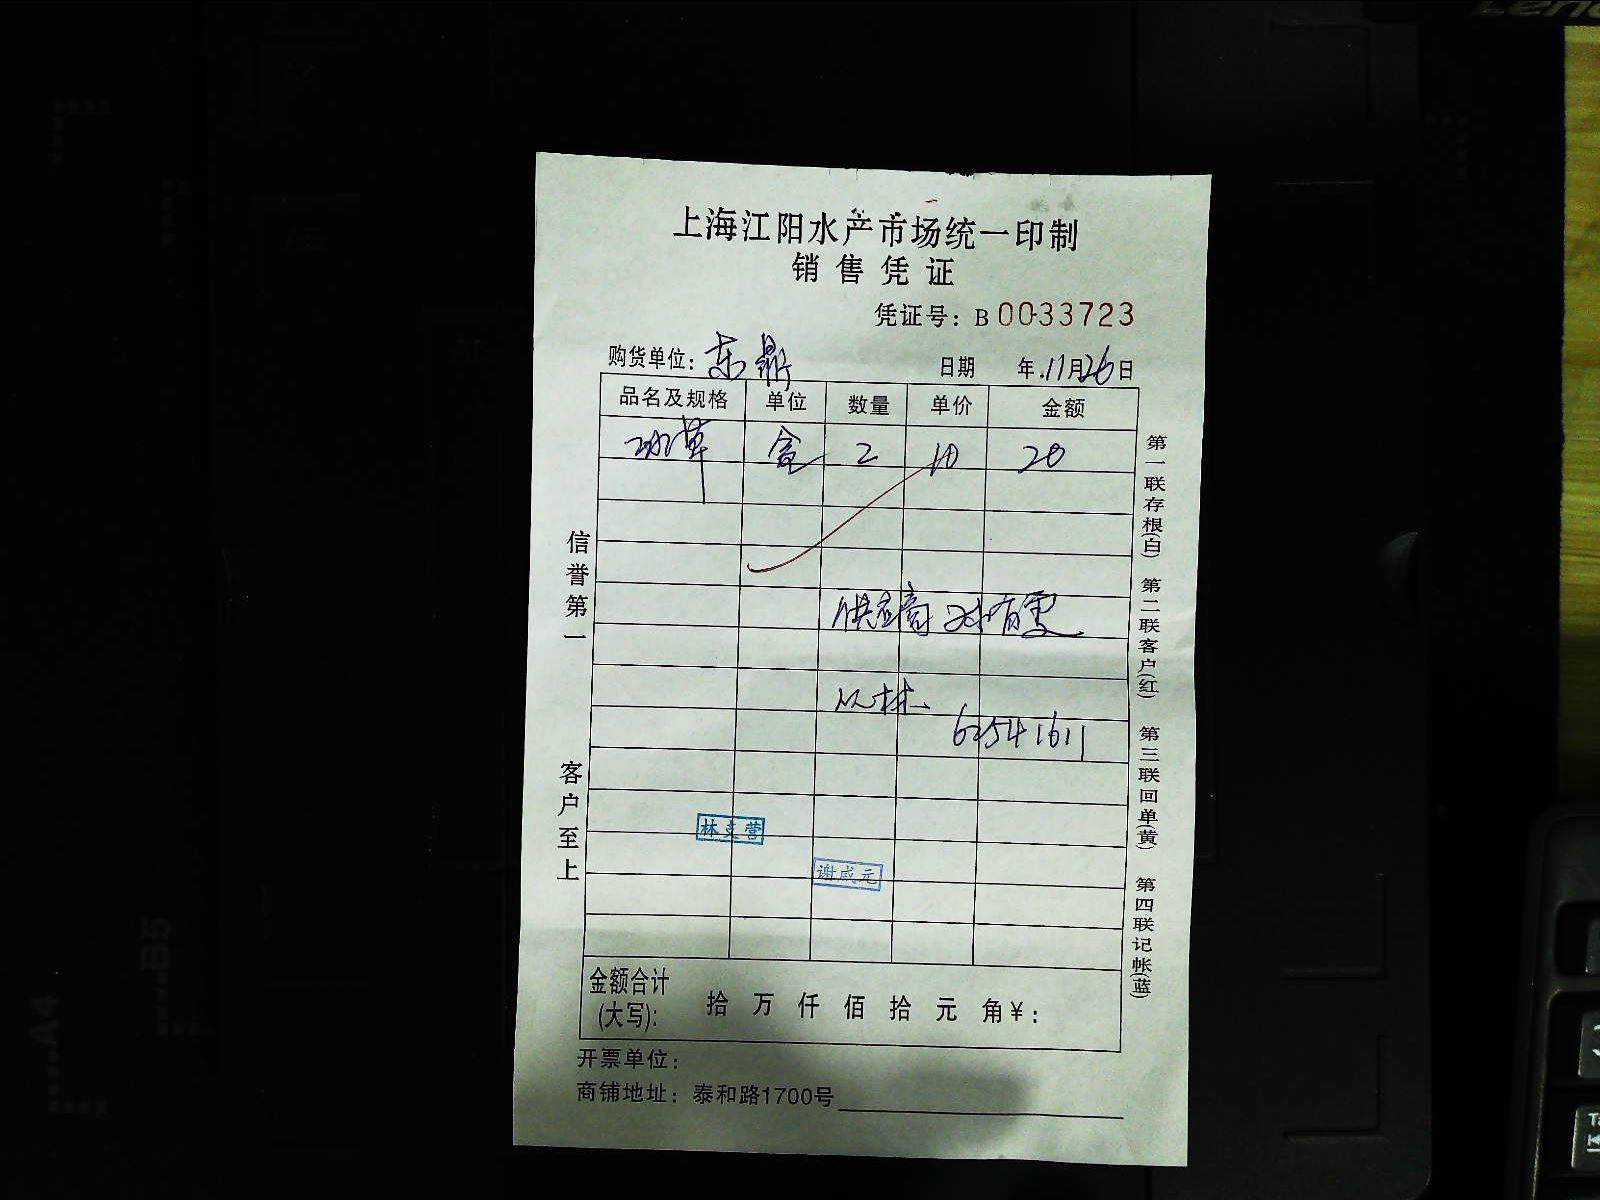 上海江阳水产市场统一印制
销售凭证
凭证号：B 0033723
购货单位：东鼎 日期 年.11月26日
品名及规格 单位 数量 单价 金额
冰草 盒 2 10 20
供应商 孙有雯
从林 62541611
林支营
谢成元
金额合计
(大写)： 拾 万 仟 佰 拾 元 角￥：
开票单位：
商铺地址：泰和路1700号
信誉第一 客户至上
第一联存根(白) 第二联客户(红) 第三联回单(黄) 第四联记帐(蓝)
A4
B5